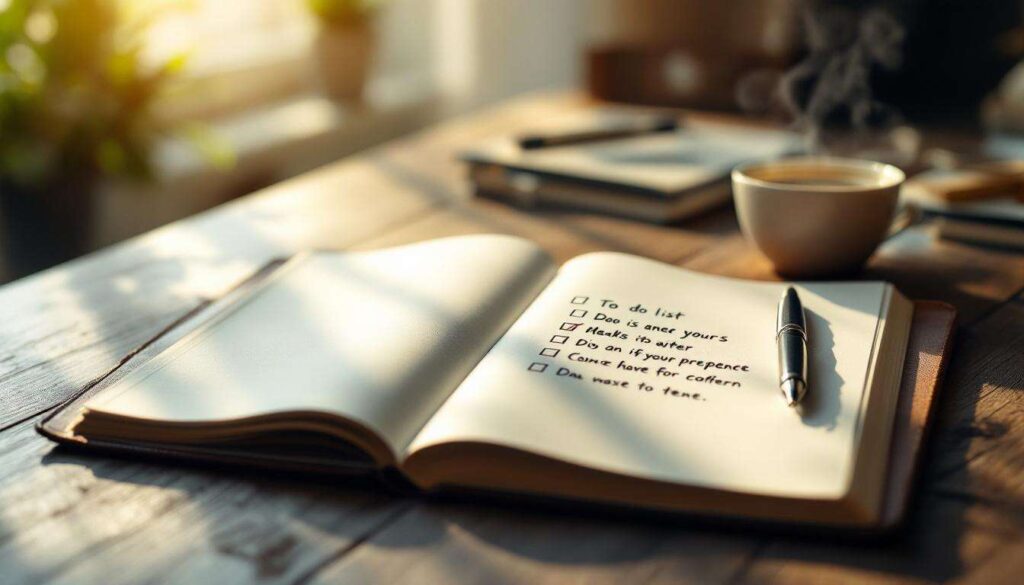 To do list
Doo is aner yours
Heaks its auter
Dis an if your prepence
Comce have for cottern
Dan woxe to tene.